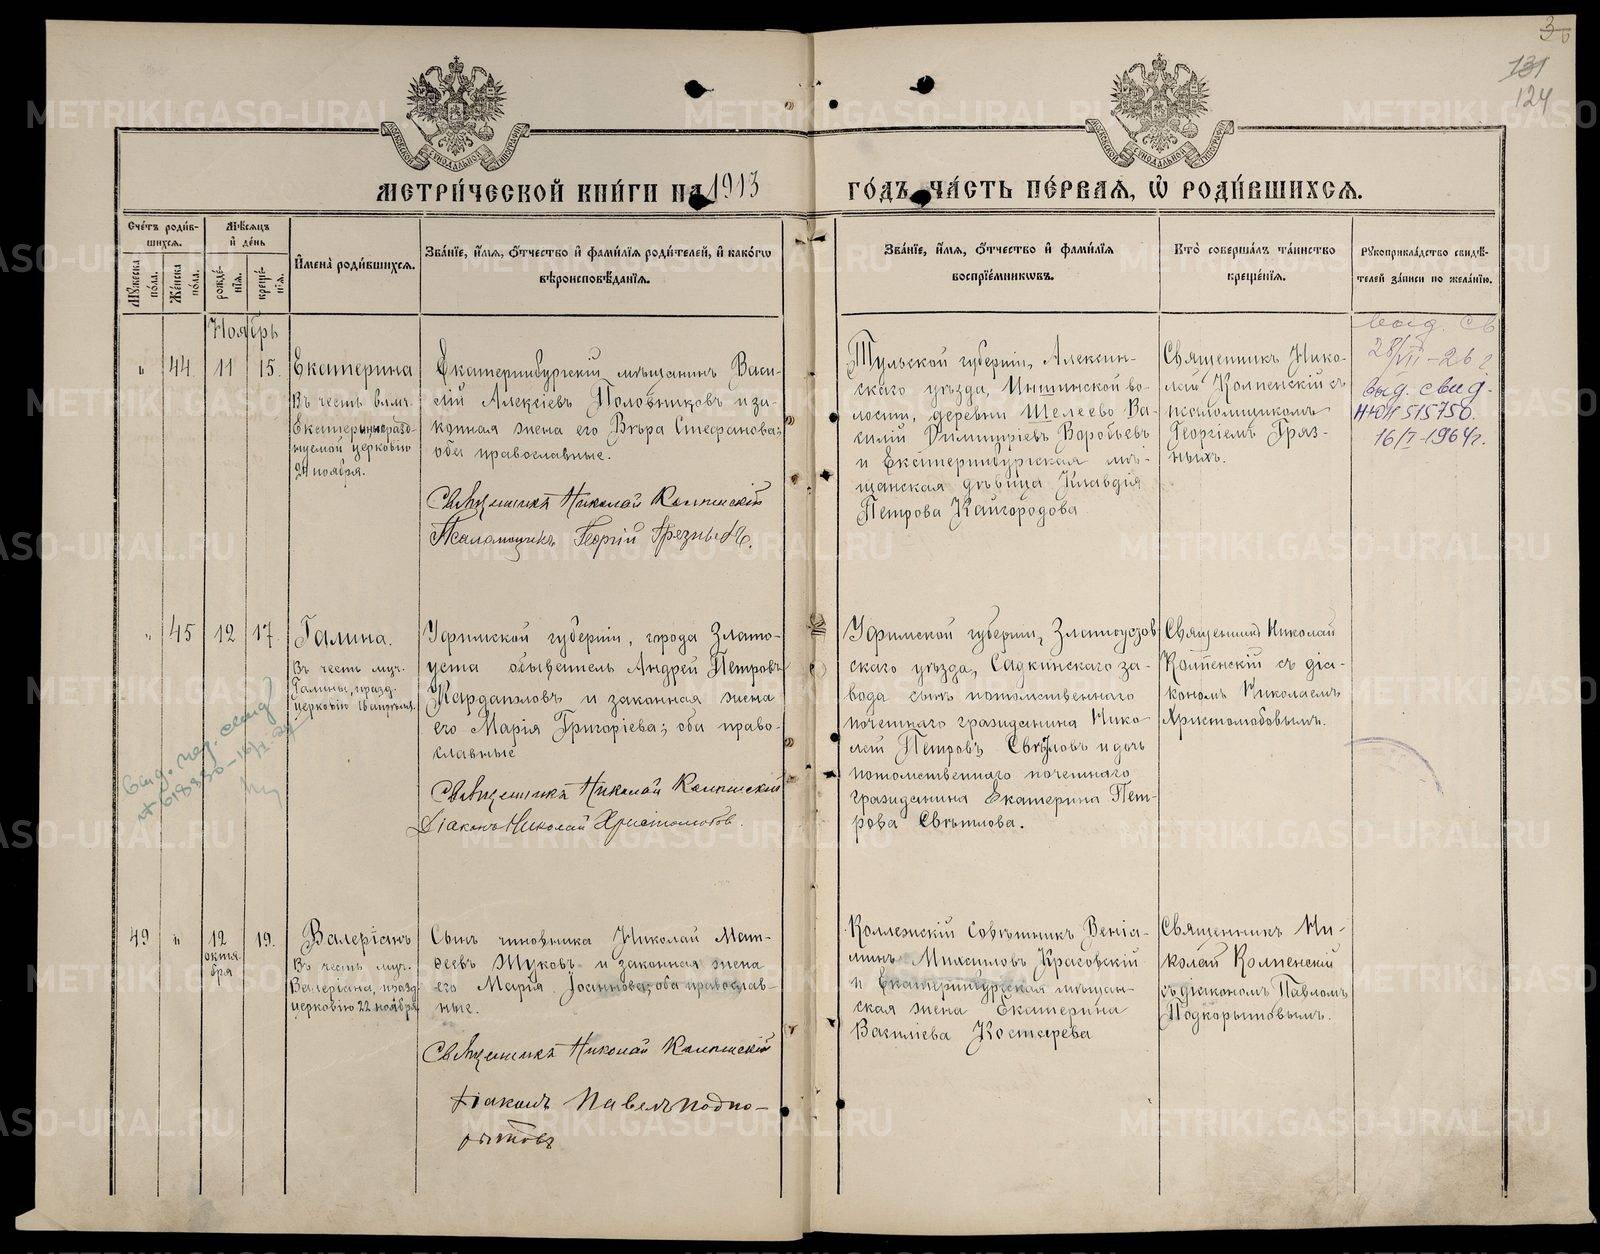 3
131
124
МОСКОВСКОЙ СѴНОДАЛЬНОЙ ТИПОГРАФІИ
МОСКОВСКОЙ СѴНОДАЛЬНОЙ ТИПОГРАФІИ
МЕТРИ́ЧЕСКОЙ КНИ́ГИ НА 1913
ГО́ДЪ, ЧА́СТЬ ПЕ́РВАѦ, Ѡ҆ РОДИ́ВШИХСѦ.
Сче́тъ роди́в-
шихсѧ.
Мѣ́сѧцъ
и҆ де́нь
Мꙋ́жеска
по́ла.
Же́нска
по́ла.
рожде́-
нїѧ.
креще́-
нїѧ.
И҆мена̀ роди́вшихсѧ.
Зва́нїе, и҆́мѧ, ѻ҆́тчество и҆ фамі́лїѧ роди́телей, и҆ како́гѡ
вѣроисповѣ́данїѧ.
Зва́нїе, и҆́мѧ, ѻ҆́тчество и҆ фамі́лїѧ
воспрїе́мникѡвъ.
Кто̀ соверша́лъ та́инство
креще́нїѧ.
Рꙋкоприкла́дство свидѣ́-
телей за́писи по жела́нїю.
Ноябрь
" 44 11 15.
Екатерина
Въ честь влмч.
Екатерины празд-
нуемой церковію
24 ноября.
Екатеринбургскій мѣщанинъ Васи-
лій Алексіевъ Половниковъ и за-
конная жена его Вѣра Стефанова;
оба православные.
Священникъ Николай Колпенскій
Псаломщикъ Георгій Грязныхъ.
Тульской губерніи, Алексин-
скаго уѣзда, Иншинской во-
лости, деревни Шелеево Ва-
силій Димитріевъ Воробьевъ
и Екатеринбургская мѣ-
щанская дѣвица Клавдія
Петрова Кайгородова
Священникъ Нико-
лай Колпенскій съ
псаломщикомъ
Георгіемъ Гряз-
ныхъ.
выд. св
28/VII-26 г
выд. свид.
II-ЮН 515750.
16/I-1964г.
" 45 12 17.
Галина.
Въ честь муч.
Галины, празд.
церковію 16 апрѣля.
Уфимской губерніи, города Злато-
уста обыватель Андрей Петровъ
Кардаполовъ и законная жена
его Марія Григоріева; оба право-
славные
Священникъ Николай Колпенскій
Діаконъ Николай Христолюбов.
Уфимской губерніи, Златоустов-
скаго уѣзда, Саткинскаго за-
вода сынъ потомственнаго
почетнаго гражданина Нико-
лай Петровъ Свѣтловъ и дочь
потомственнаго почетнаго
гражданина Екатерина Пет-
рова Свѣтлова.
Священникъ Николай
Колпенскій съ діа-
кономъ Николаемъ
Христолюбовымъ.
49 " 12 19.
октя-
бря
Валеріанъ
Въ честь муч.
Валеріана, празд.
церковію 22 ноября
Сынъ чиновника Николай Мат-
ѳеевъ Жуковъ и законная жена
его Марія Іоаннова; оба православ-
ные.
Священникъ Николай Колпенскій
Діаконъ Павелъ Подко-
рытовъ
Коллежскій Совѣтникъ Веніа-
минъ Михаиловъ Красовскій
и Екатеринбургская мѣщан-
ская жена Екатерина
Василіева Костарева
Священникъ Ни-
колай Колпенскій
съ діакономъ Павломъ
Подкорытовымъ.
METRIKI.GASO-URAL.RU